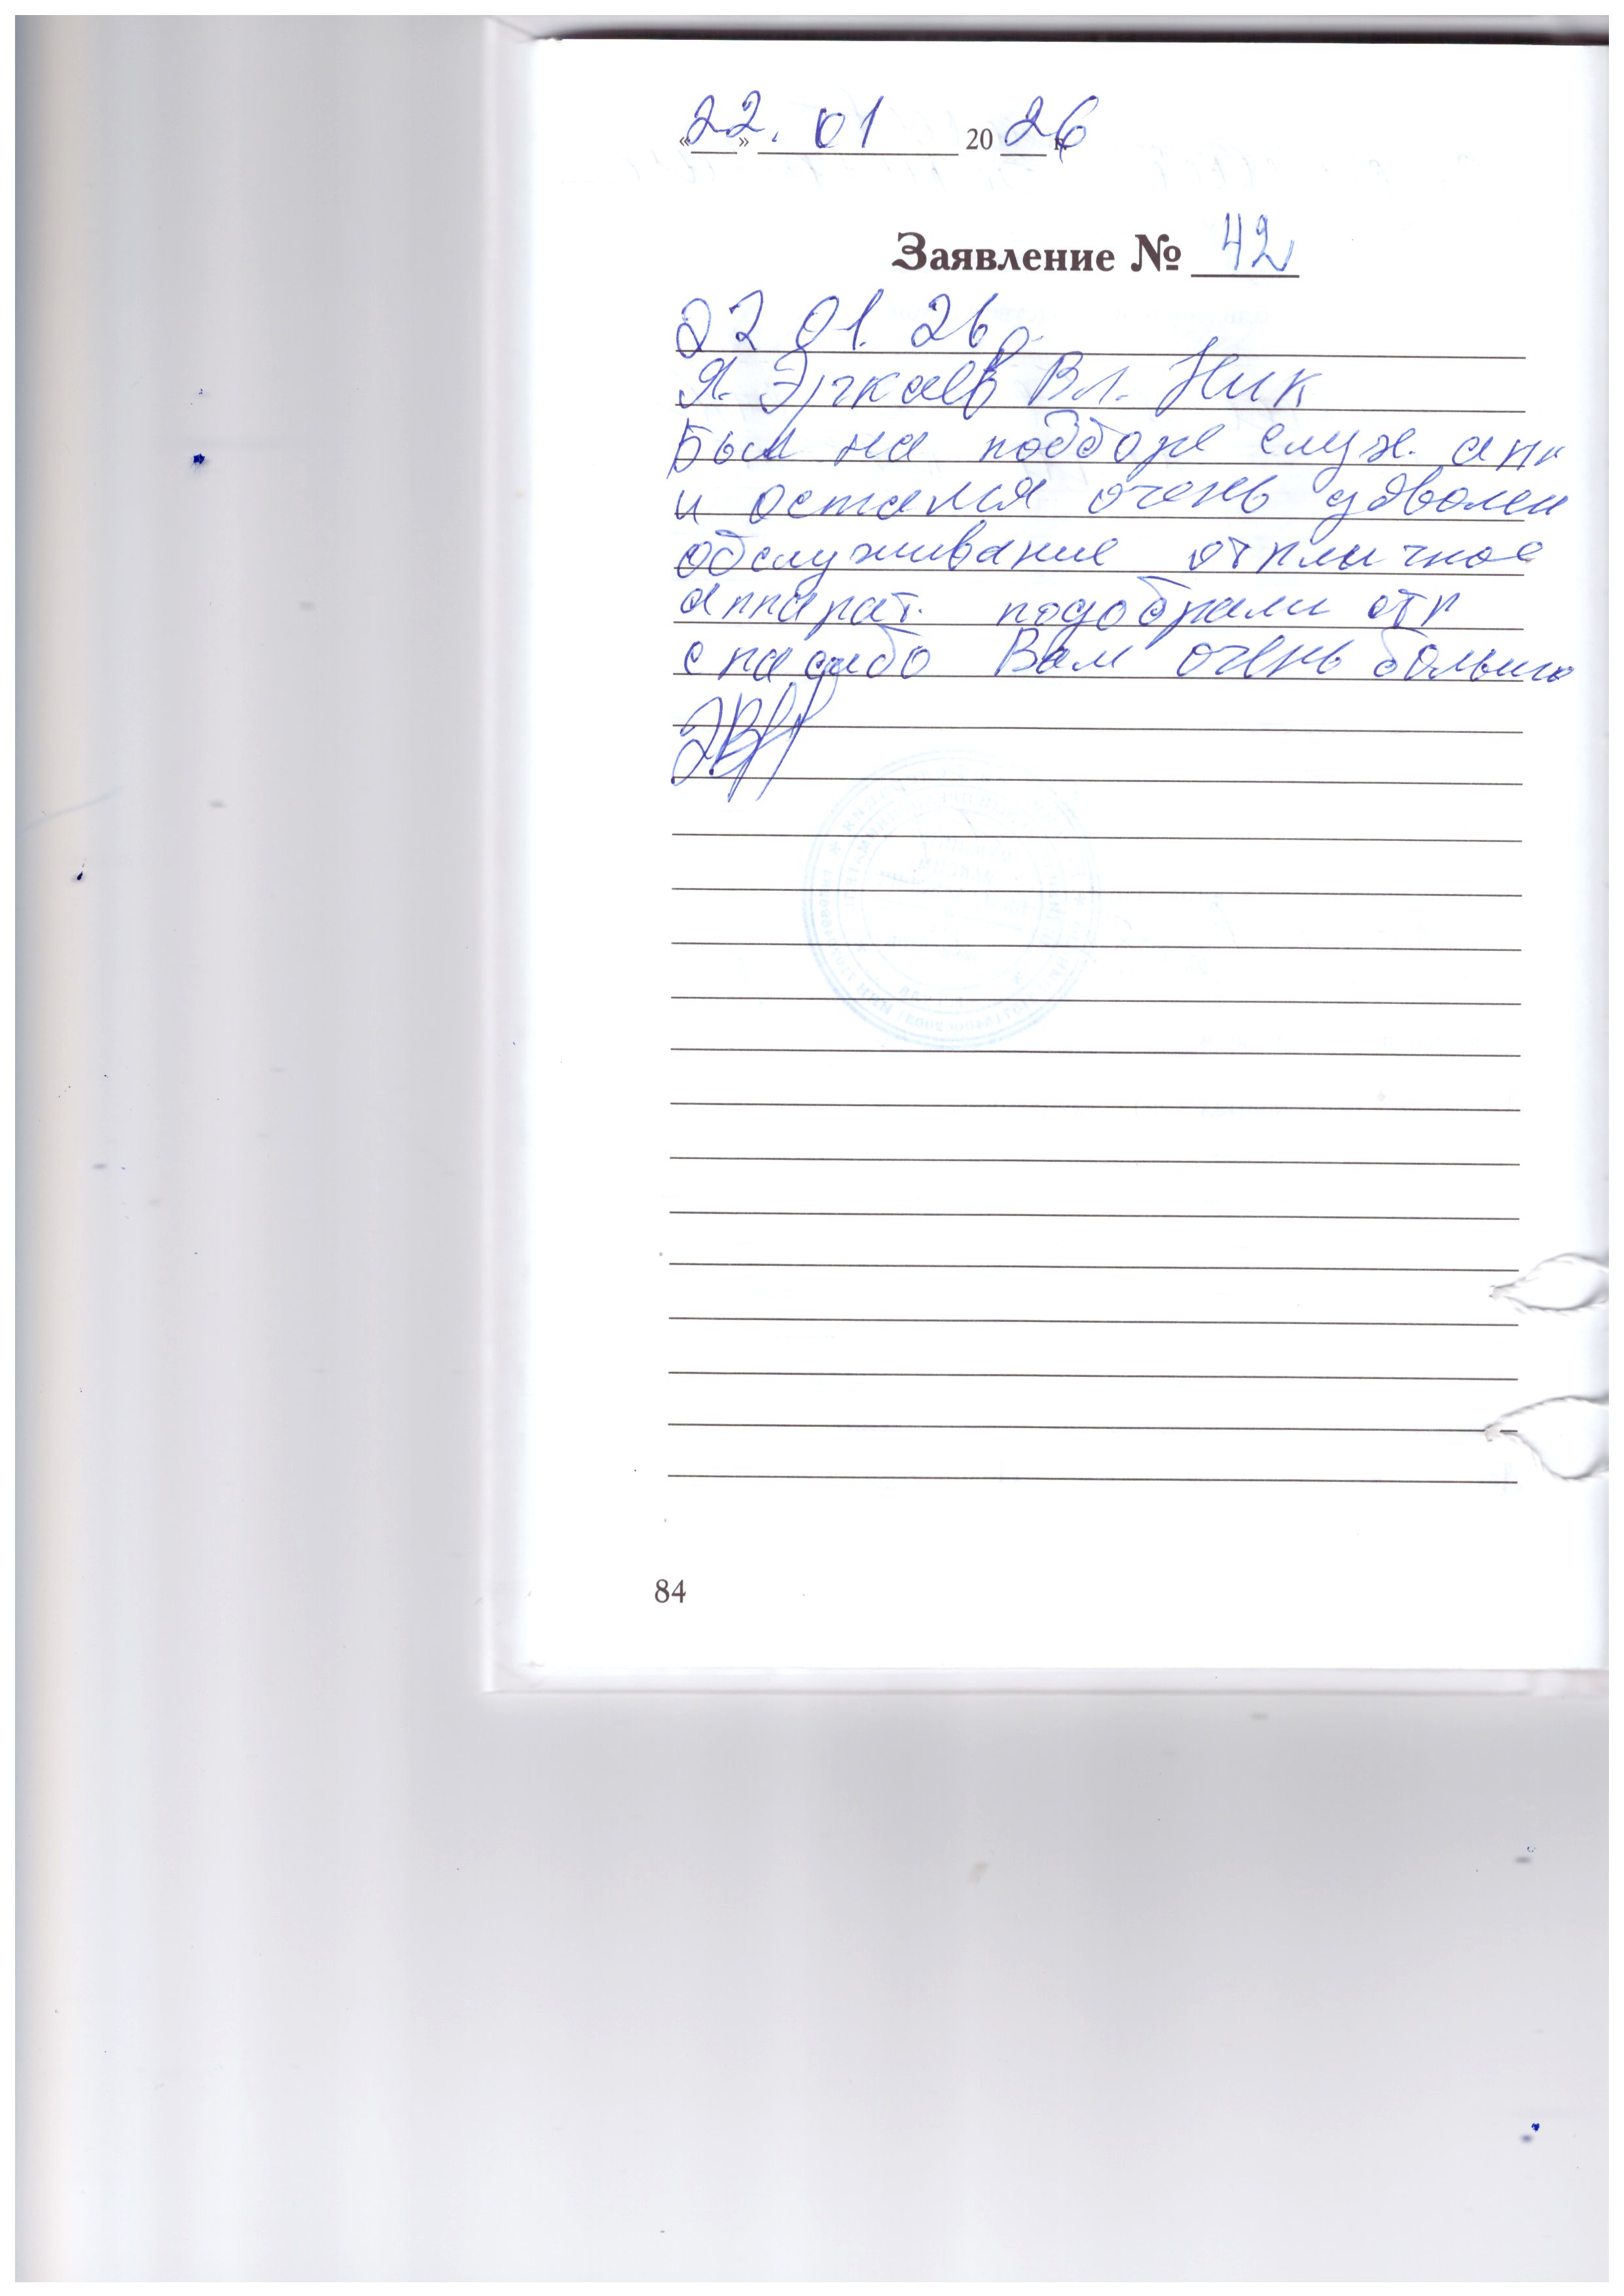 «22». 01 2026 г.
Заявление № 42
22 01. 26 г.
Я. Эркаев Вл. Ник
был на подборе слух. апп
и остался очень удволен
обслуживание отличное
аппарат. подобрали отл
спасибо Вам очень большо
84